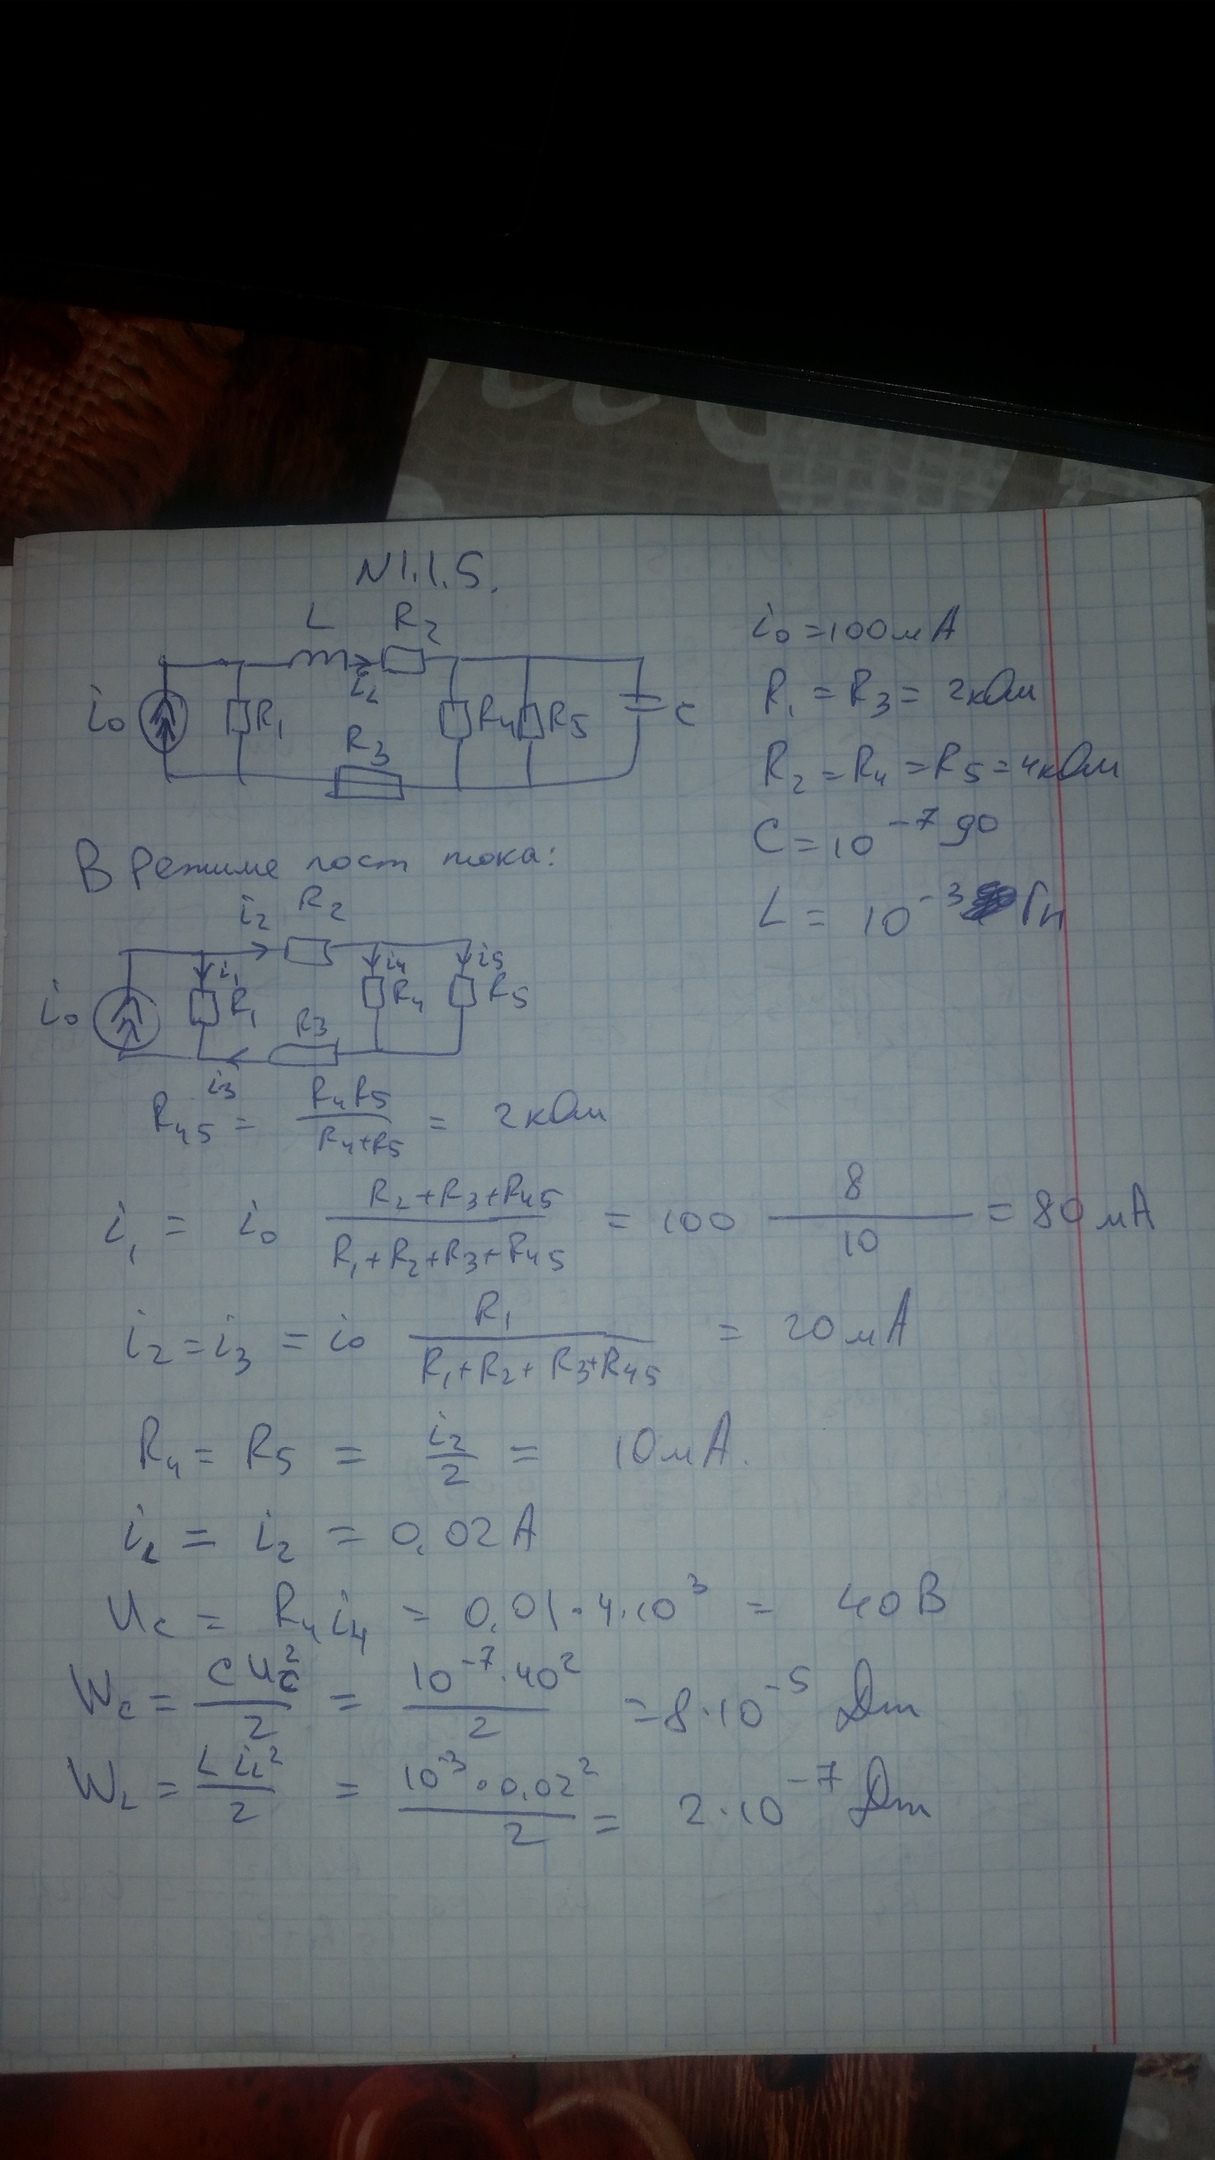 N1.1.5.
L R2
iL
i0 R1 R4 R5 C
R3
i0 = 100 мА
R1 = R3 = 2 кОм
R2 = R4 = R5 = 4 кОм
C = 10^-7
L = 10^-3 Гн
В режиме пост тока:
i2 R2
i0 i1 R1 i4 R4 i5 R5
R3
i3
R45 = R4R5 / (R4+R5) = 2 кОм
i1 = i0 (R2+R3+R45) / (R1+R2+R3+R45) = 100 8/10 = 80 мА
i2 = i3 = i0 R1 / (R1+R2+R3+R45) = 20 мА
R4 = R5 = i2/2 = 10 мА.
iL = i2 = 0,02 А
Uc = R4 i4 = 0,01·4·10^3 = 40 В
Wc = C Uc^2 / 2 = 10^-7·40^2 / 2 = 8·10^-5 Дж
WL = L iL^2 / 2 = 10^-3·0,02^2 / 2 = 2·10^-7 Дж